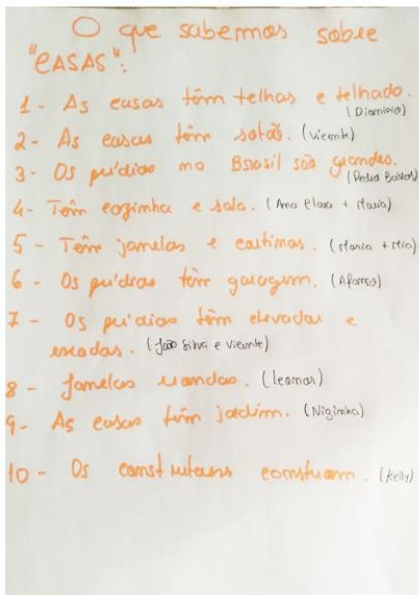 O que sabemos sobre
"CASAS":
1 - As casas têm telhas e telhado.
(Dionísio)
2 - As casas têm sotão. (Vicente)
3 - Os prédios no Brasil são grandes.
(Pedro Bastos)
4 - Têm cozinha e sala. (Ana Clara + Maria)
5 - Têm janelas e cortinas. (Maria + Mia)
6 - Os prédios têm garagem. (Afonso)
7 - Os prédios têm elevador e
escadas. (João Silva e Vicente)
8 - Janelas redondas. (Leonor)
9 - As casas têm jardim. (Niginha)
10 - Os construtores constroem. (Kelly)